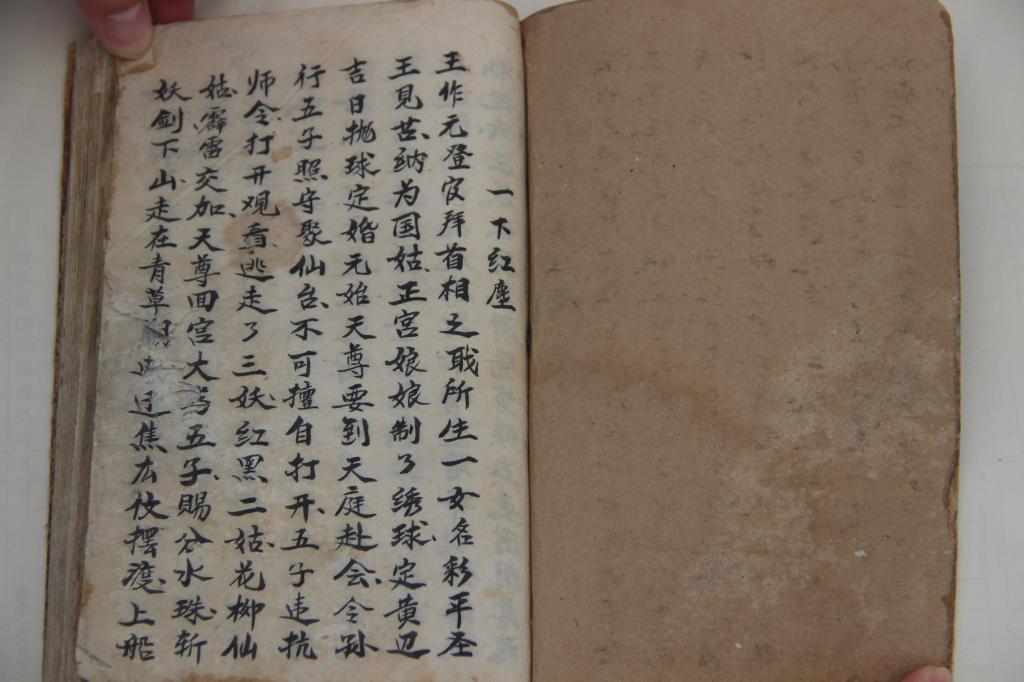 一下红塵
王作元登官拜首相之职所生一女名彩平圣
王見苦纳为国姑正宫娘娘制了绣球定黄辺
吉日抛球定婚元始天尊要到天庭赴会令孙
行五子照守聚仙台不可擅自打开五子违抗
师令打开观看逃走了三妖红黑二姑花柳仙
姑霹雷交加天尊回宫大骂五子賜分水珠斩
妖剑下山走在青草过焦広伩摆渡上船